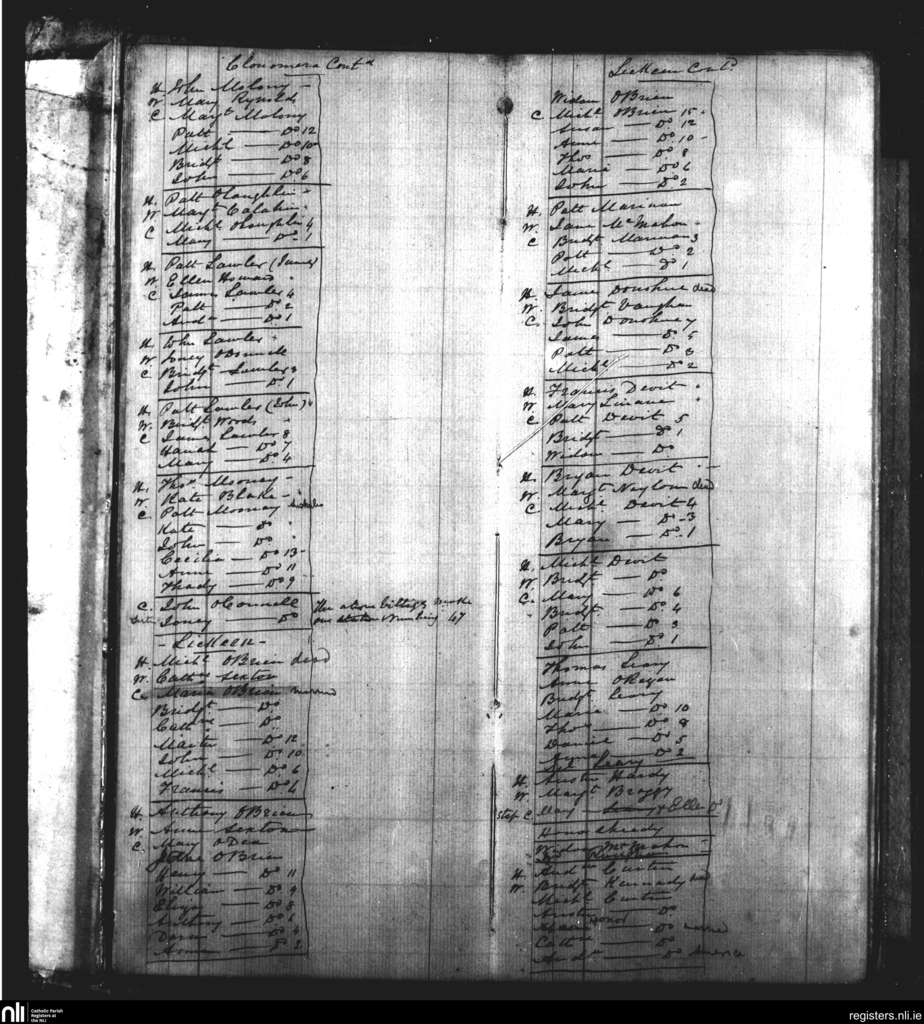 Clonomera Contd
H. John Molony
W Mary Rynolds
C Margt Molony
Patt — Do 12
Michl — Do 10
Bridt — Do 8
John — Do 6
H. Patt OLoughlin
W Margt Calahin
C Michl OLoughlin 4
Mary — Do 1
H. Patt Lawler (James)
W Ellen Howard
C James Lawler 4
Patt — Do 2
Andw — Do 1
H. John Lawler
W Honey
C Bridgt Lawler 3
John — Do 1
H. Patt Lawler (John)
W. Bridgt Woods
C James Lawler 8
Hanah — Do 7
Mary — Do 4
H. Thos. Mooney
W Kate Blake
C. Patt Mooney
Kate — Do
John — Do
Cecilia — Do 13
Anne — Do 11
Thady — Do 9
C. John OConnell
Honey — Do
The above make
one station numbering 47
- Lickeen -
H Michl OBrien dead
W. Cathe Sexton
C. Maria OBrien married
Bridgt — Do
Cathe — Do
Martin — Do 12
John — Do 10
Michl — Do 6
Francis — Do 4
H. Anthony OBrien
W Anne Sexton
C. Mary ODea
OBrien
Henry — Do 11
William — Do 9
Eliza — Do 8
Anthony — Do 6
— Do 4
Anne — Do 2
Lickeen Contd
Widow OBrien
C Michl OBrien 15
Susan — Do 12
Anne — Do 10
Thos — Do 8
Maria — Do 6
John — Do 2
H. Patt Marinan
W. Jane McMahon
C Bridgt Marinan 3
Patt — Do 2
Michl — Do 1
H. James Donohue dead
W. Bridgt Vaughan
C. John Donohue 7
James — Do 5
Patt — Do 3
Michl — Do 2
H. Francis Devit
W Mary Linane
C Patt Devit 5
Bridgt — Do 1
Widow — Do
H. Bryan Devit
W. Margt Naylon dead
C Michl Devit 4
Mary — Do 3
Bryan — Do 1
H. Michl Devit
W Bridgt — Do
C. Mary — Do 6
Bridgt — Do 4
Patt — Do 3
John — Do 1
Thomas Leary
Anne ORegan
Bridgt Leary
Maria — Do 10
Thos — Do 8
Daniel — Do 5
— Do 2
Leary
H Austin Hardy
W Margt
step C. Mary — & Ellen Do
Honor
Widow McMahon
H. Andw Curtin
W. Bridgt Kennedy
Michl Curtin
Austin — Do
Honor
— Do married
Cathe — Do
Andw — Do America
nli
Catholic Parish
Registers at
the NLI
registers.nli.ie